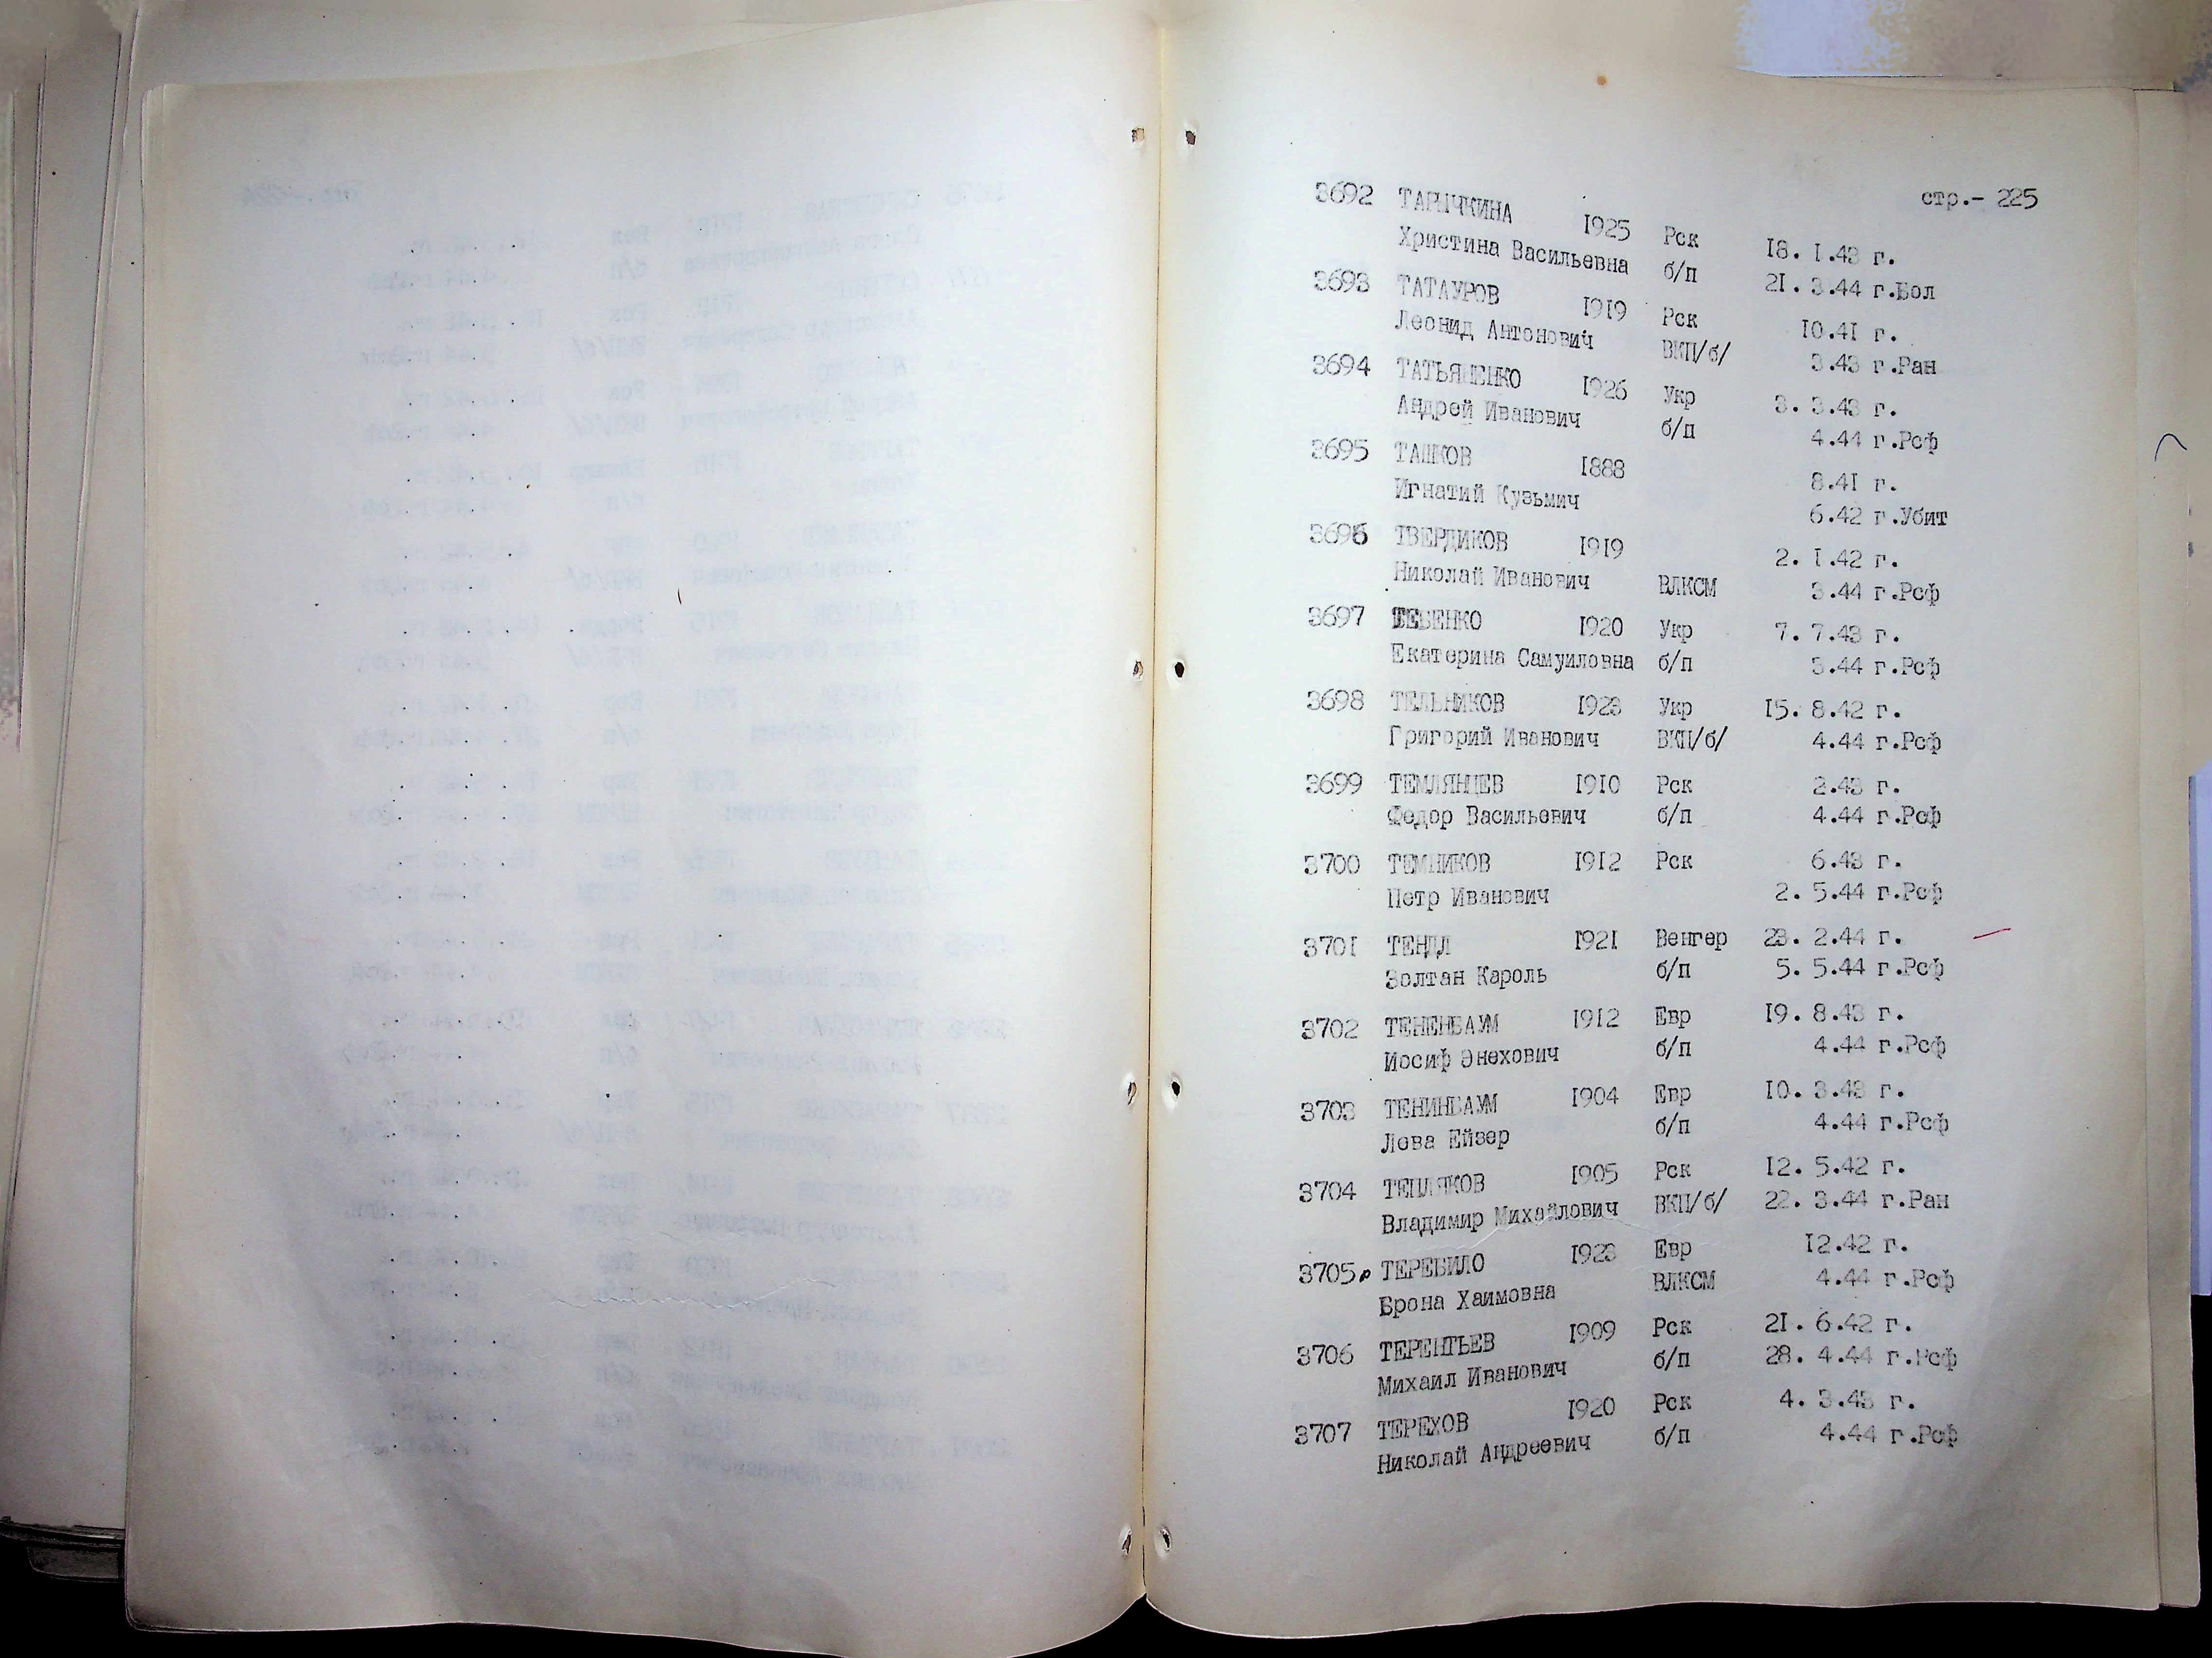 стр.- 225
3692 ТАРЫЧКИНА 1925 Рск 18. 1.43 г.
Христина Васильевна б/п 21. 3.44 г.Бол
3693 ТАТАУРОВ 1919 Рск 10.41 г.
Леонид Антонович ВКП/б/ 3.43 г.Ран
3694 ТАТЬЯНЕНКО 1926 Укр 3. 3.43 г.
Андрей Иванович б/п 4.44 г.Рсф
3695 ТАШКОВ 1888 8.41 г.
Игнатий Кузьмич 6.42 г.Убит
3696 ТВЕРДИКОВ 1919 2. 1.42 г.
Николай Иванович ВЛКСМ 3.44 г.Рсф
3697 ТЕБЕНКО 1920 Укр 7. 7.43 г.
Екатерина Самуиловна б/п 3.44 г.Рсф
3698 ТЕЛЬНИКОВ 1923 Укр 15. 8.42 г.
Григорий Иванович ВКП/б/ 4.44 г.Рсф
3699 ТЕМЛЯНЦЕВ 1910 Рск 2.43 г.
Федор Васильевич б/п 4.44 г.Рсф
3700 ТЕМНИКОВ 1912 Рск 6.43 г.
Петр Иванович 2. 5.44 г.Рсф
3701 ТЕНДЛ 1921 Венгер 23. 2.44 г.
Золтан Кароль б/п 5. 5.44 г.Рсф
3702 ТЕНЕНБАУМ 1912 Евр 19. 8.43 г.
Иосиф Энехович б/п 4.44 г.Рсф
3703 ТЕНИНБАУМ 1904 Евр 10. 3.43 г.
Лева Ейзер б/п 4.44 г.Рсф
3704 ТЕПЛЯКОВ 1905 Рск 12. 5.42 г.
Владимир Михайлович ВКП/б/ 22. 3.44 г.Ран
3705. ТЕРЕБИЛО 1923 Евр 12.42 г.
Брона Хаимовна ВЛКСМ 4.44 г.Рсф
3706 ТЕРЕНТЬЕВ 1909 Рск 21. 6.42 г.
Михаил Иванович б/п 28. 4.44 г.Рсф
3707 ТЕРЕХОВ 1920 Рск 4. 3.43 г.
Николай Андреевич б/п 4.44 г.Рсф